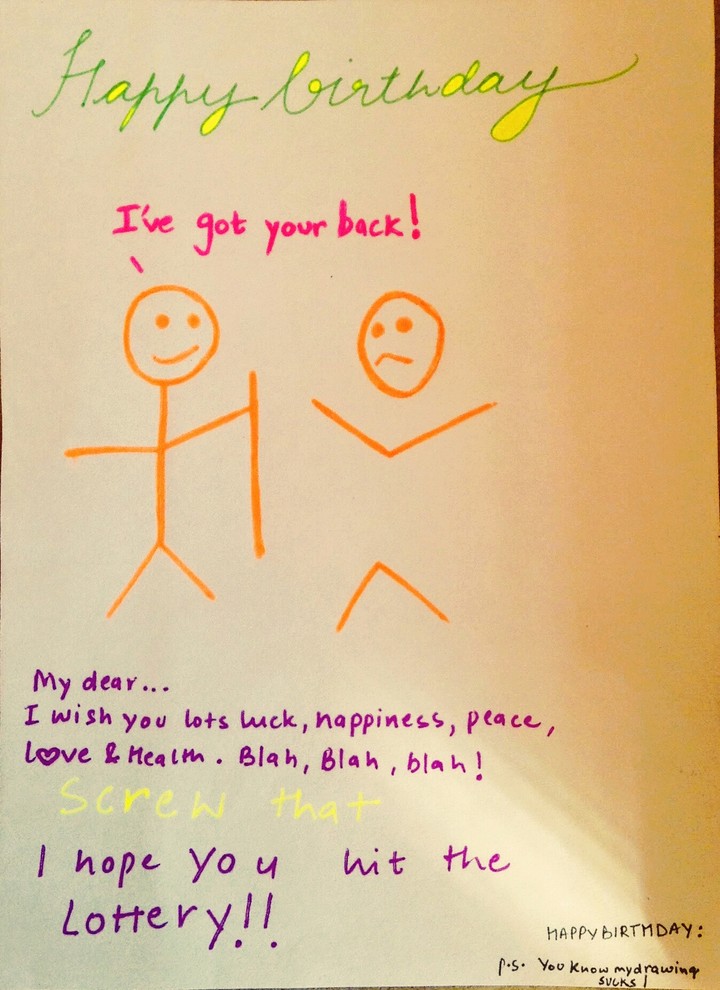 Happy birthday
I've got your back!
My dear...
I wish you lots luck, happiness, peace,
Love & Health. Blah, Blah, blah!
Screw that
I hope you hit the
Lottery!!
HAPPY BIRTHDAY:
p.s. You know my drawing
sucks!